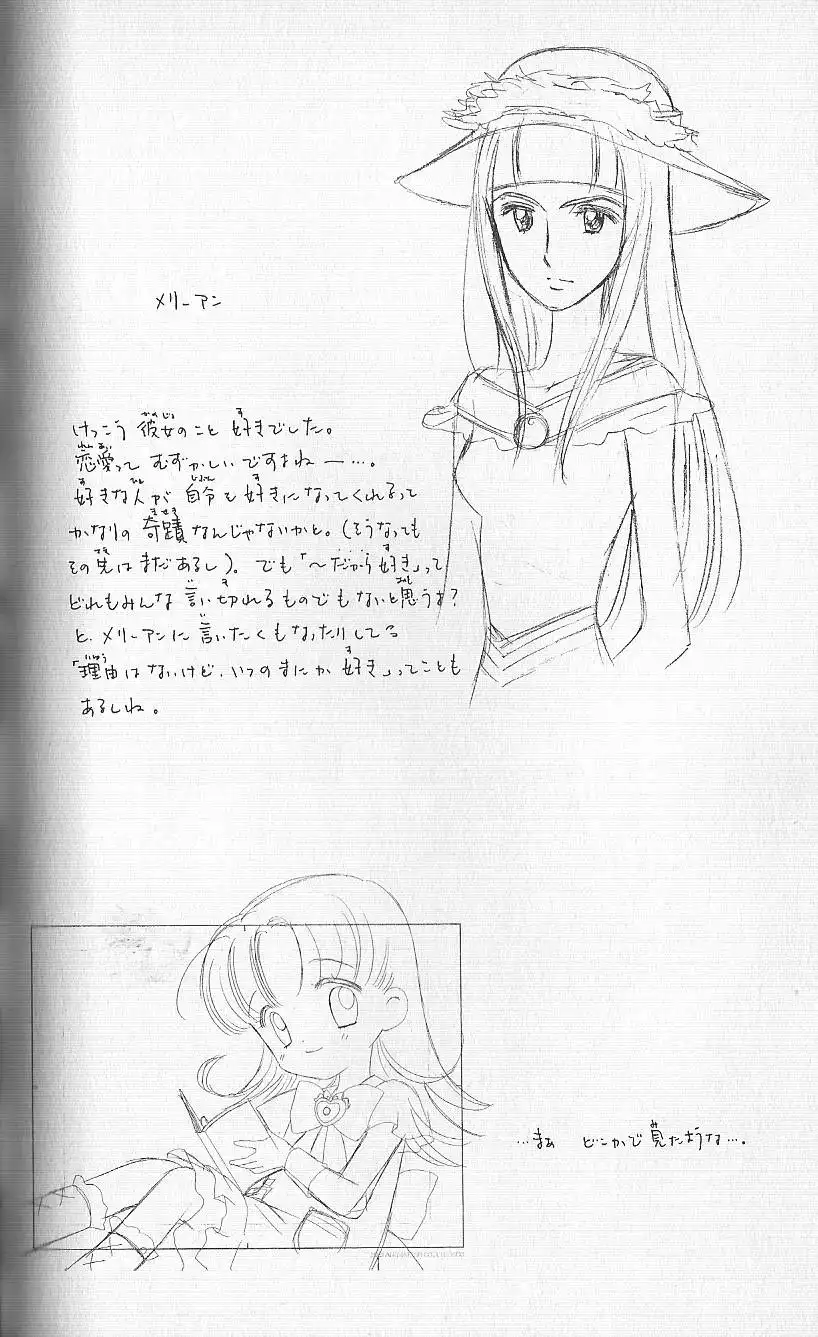 メリーアン
けっこう 彼女のこと 好きでした。
恋愛って むずかしいですよねー…。
好きな人が 自分も好きになってくれるって
かなりの 奇蹟なんじゃないかと。(そうなっても
その先はまだあるし)。でも「〜だから好き」って
どれもみんな 言い切れるものでもないと思うよ?
と、メリーアンに 言いたくもなったりしてる
「理由はないけど、いつのまにか 好き」ってことも
あるしね。
…まぁ どこかで見たような…。